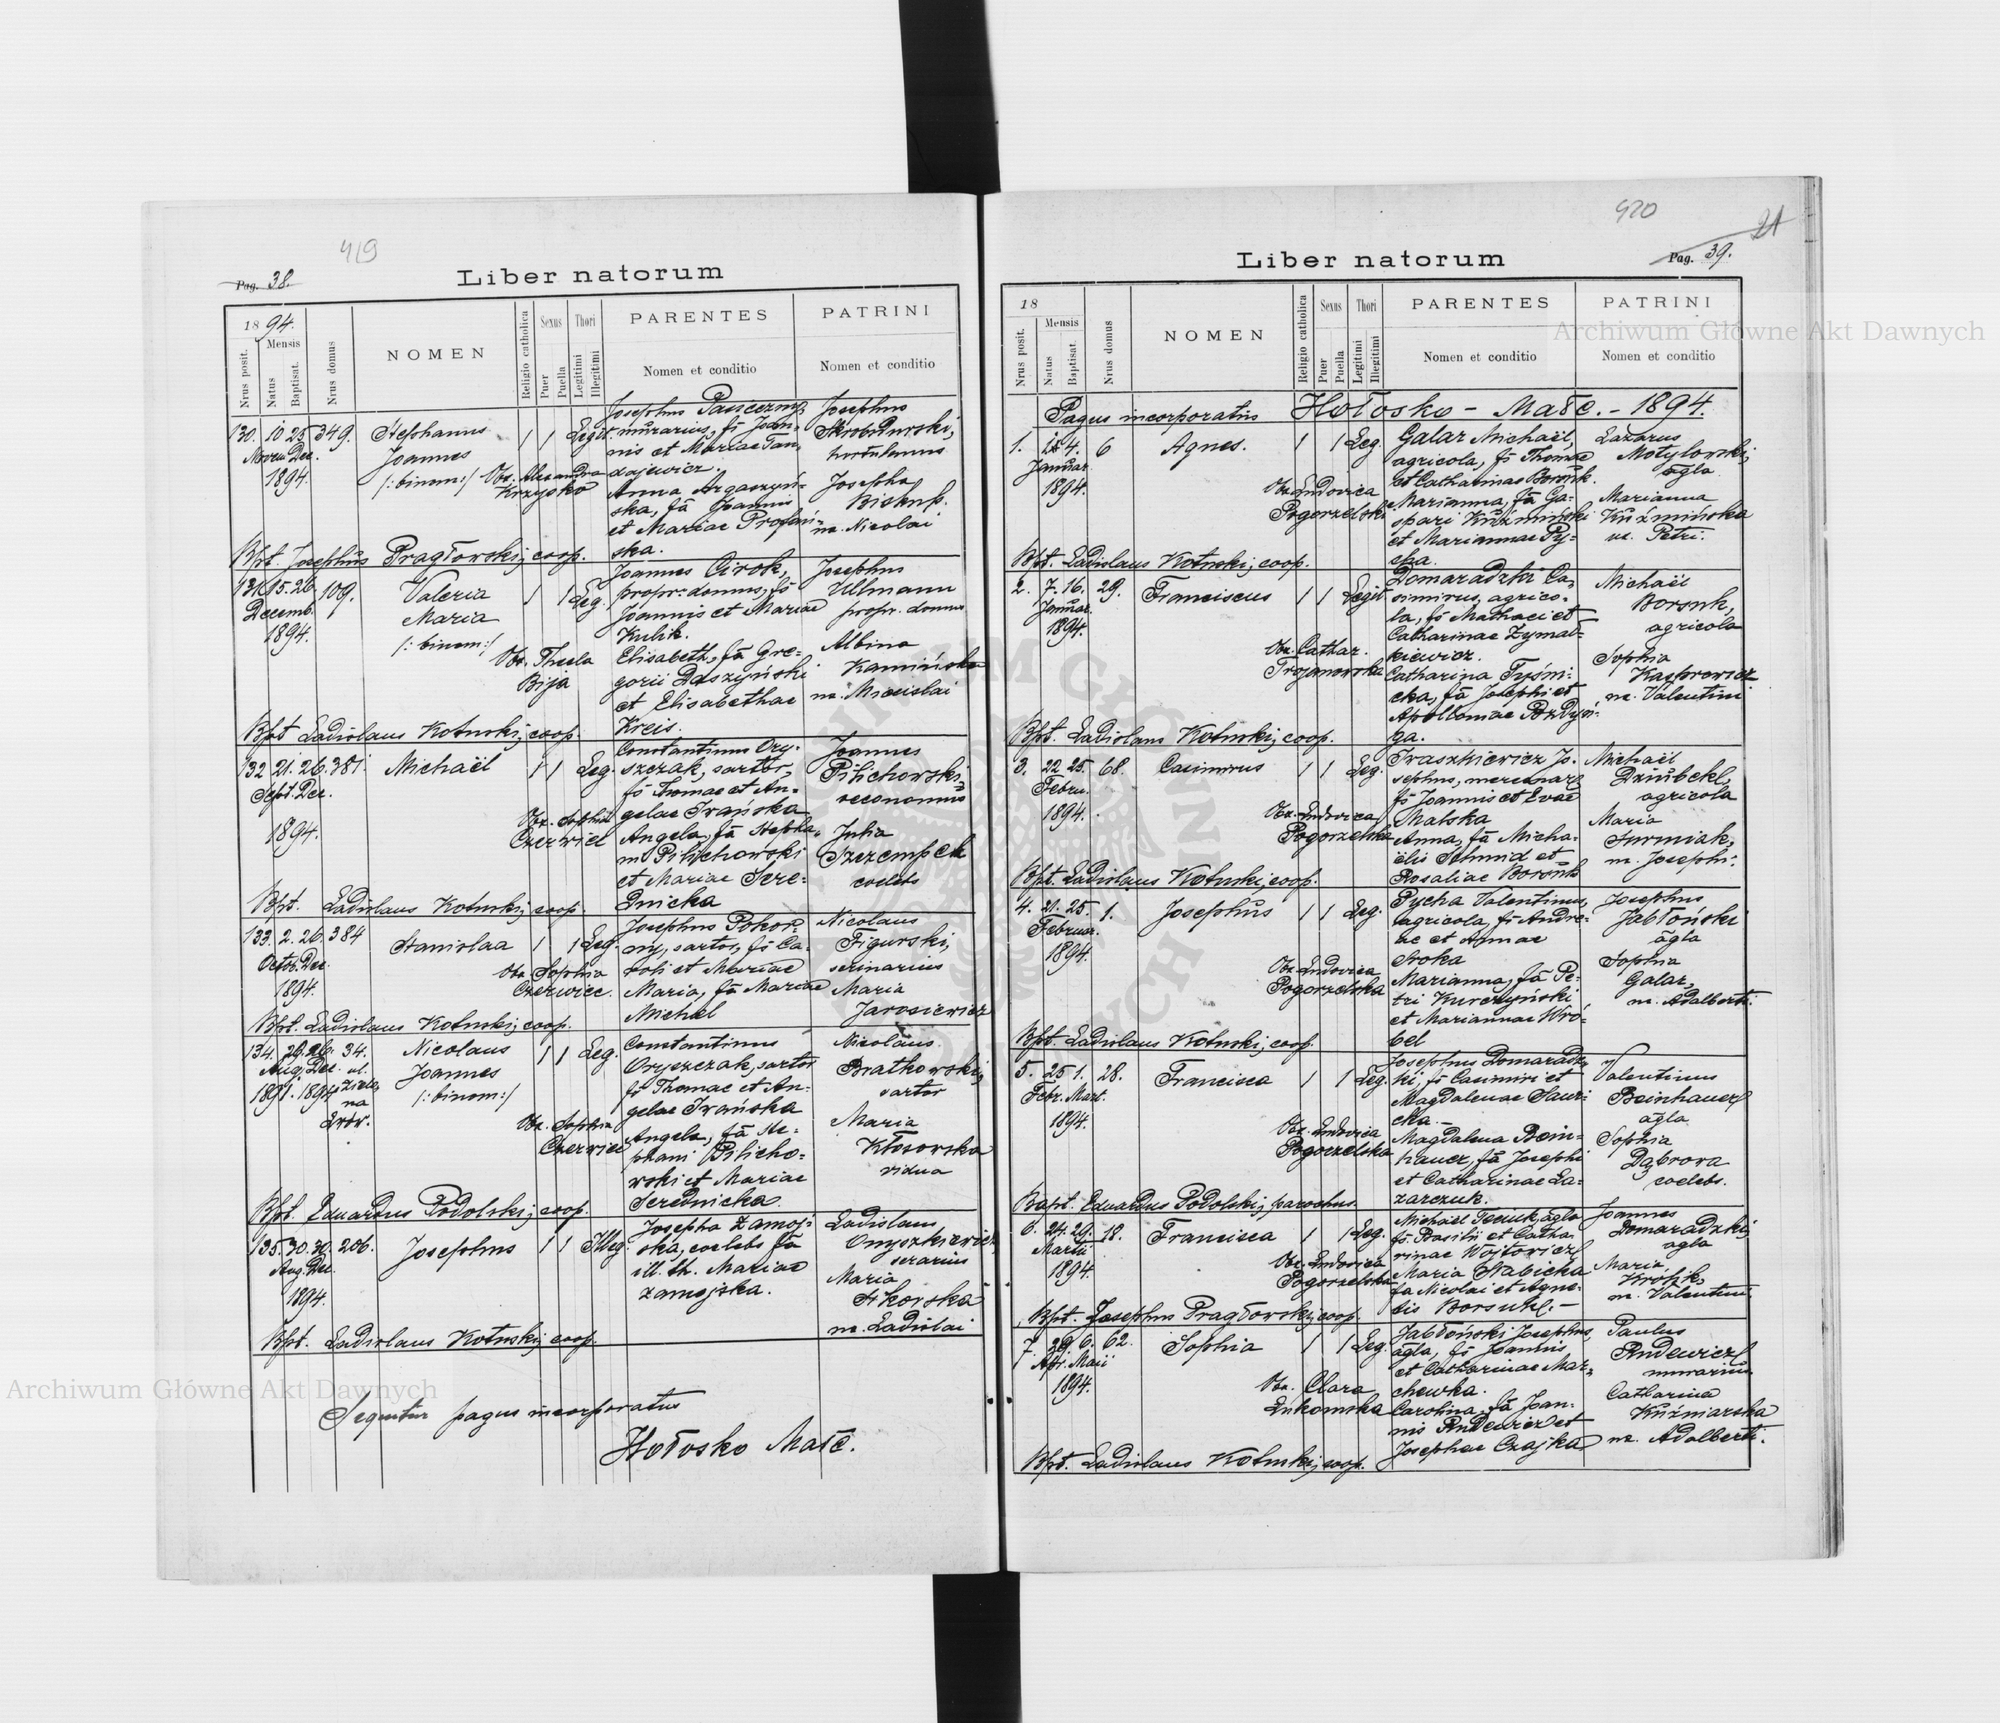 419
Pag. 38.
Liber natorum
1894.
Mensis
Nrus posit.
Natus
Baptisat.
Nrus domus
NOMEN
Religio catholica
Sexus
Puer
Puella
Thori
Legitimi
Illegitimi
PARENTES
Nomen et conditio
PATRINI
Nomen et conditio
130. 10 25 349.
Novem Dec.
1894.
Stephanus
Joannes
/:binom:/
Obs. Alexandra
Krzysko
1 1 Legit.
murarius, fs Joan-
nis et Mariae
Anna
ska, fa Joannis
et Mariae
ska.
Josephus
Josepha
Biskup.
ux. Nicolai
Bpt. Josephus Pragłowski, coop.
131. 15. 26. 109.
Decemb.
1894.
Valeria
Maria
/:binom:/
Obs. Thecla
Bija
1 1 Leg.
Joannes Cirok,
propr. domus, fs
Joannis et Mariae
Kulik.
Elisabeth, fa Gre-
gorii Daszyński
et Elisabethae
Kreis.
Josephus
Ullmann
propr. domus
Albina
Kamińska
ux. Miecislai
Bpt. Ladislaus Kotuski, coop.
132 21. 26. 381.
Sept. Dec.
1894.
Michaël
Obs. Sophia
Czerwiec
1 1 Leg.
Constantinus Ory-
szczak, sartor,
fs Thomae et An-
gelae Irańska
Angela, fa Stepha-
ni Pilichowski
et Mariae Sere-
dnicka
Joannes
Pilichowski
oeconomus
Julia
Szczempek
coelebs
Bpt. Ladislaus Kotuski, coop.
133. 2. 26. 384
Octob. Dec.
1894.
Stanislaa
Obs. Sophia
Czerwiec.
1 1 Leg.
Josephus Pokor-
ny, sartor, fs Ca-
roli et Mariae
Maria, fa Mariae
Michel
Nicolaus
Figurski,
scriniarius
Maria
Jarosiewicz
Bpt. Ladislaus Kotuski, coop.
134. 29. 26. 34.
Aug. Dec. ul.
1891. 1894
na
Nicolaus
Joannes
/:binom:/
Obs. Sophia
Czerwiec
1 1 Leg.
Constantinus
Oryszczak, sartor
fs Thomae et An-
gelae Irańska
Angela, fa Ste-
phani Pilicho-
wski et Mariae
Serednicka.
Nicolaus
Bratkowski,
sartor
Maria
Kłosowska
vidua
Bpt. Eduardus Podolski, coop.
135. 30. 30. 206.
Aug. Dec.
1894.
Josephus
1 1 Illeg.
Josepha Zamoj-
ska, coelebs fa
ill. th. Mariae
Zamojska.
Ladislaus
Onyszkiewicz
serarius
Maria
Sikorska
ux. Ladislai
Bpt. Ladislaus Kotuski, coop.
Sequitur pagus incorporatus
Hołosko Małe.
420
21
Pag. 39.
Liber natorum
18
Mensis
Nrus posit.
Natus
Baptisat.
Nrus domus
NOMEN
Religio catholica
Sexus
Puer
Puella
Thori
Legitimi
Illegitimi
PARENTES
Nomen et conditio
PATRINI
Nomen et conditio
Pagus incorporatus Hołosko - Małe. - 1894.
1. 4. 6
Januar.
1894.
Agnes.
Obs. Ludovica
Pogorzelska
1 1 Leg.
Galar Michaël,
agricola, fs Thomae
et Catharinae Borsuk.
Marianna, fa Ga-
spari Kuźmiński
et Mariannae Py-
cha.
Lazarus
Motylowski,
agla
Marianna
Kuźmińska
ux. Petri.
Bpt. Ladislaus Kotuski, coop.
2. 7. 16. 29.
Januar.
1894.
Franciscus
Obs. Cathar.
Trojanowska
1 1 Legit
Domaradzki Ca-
simirus, agrico-
la, fs Mathaei et
Catharinae Szymad-
kiewicz.
Catharina Tyśmi-
cka, fa Josephi et
Apolloniae
ga.
Michaël
Borsuk,
agricola
Sophia
Kasprowicz
ux. Valentini
Bpt. Ladislaus Kotuski, coop.
3. 22. 25. 68.
Febru.
1894.
Casimirus
Obs. Ludovica
Pogorzelska
1 1 Leg.
Iraszkiewicz Jo-
sephus,
fs Joannis et Evae
Malska
Anna, fa Micha-
ëlis Schmid et
Rosaliae Borsuk
Michaël
Dziubek,
agricola
Maria
Furmiak,
ux. Josephi.
Bpt. Ladislaus Kotuski, coop.
4. 21. 25. 1.
Februar.
1894.
Josephus
Obs. Ludovica
Pogorzelska
1 1 Leg.
Pycha Valentinus,
agricola, fs Andre-
ae et Annae
Sroka
Marianna, fa Pe-
tri Kurczyński
et Mariannae Wró-
bel
Josephus
Jabłoński
agla
Sophia
Galar,
ux. Adalberti.
Bpt. Ladislaus Kotuski, coop.
5. 25 1. 28.
Febr. Mart.
1894.
Francisca
Obs. Ludovica
Pogorzelska
1 1 Leg.
Josephus Domaradz-
ki, fs Casimiri et
Magdalenae Sawi-
cka.
Magdalena Bein-
hauer, fa Josephi
et Catharinae La-
zarczuk.
Valentinus
Beinhauer
agla
Sophia
Dąbrowa
coelebs.
Bapt. Eduardus Podolski, parochus.
6. 24. 29. 18.
Martii
1894.
Francisca
Obs. Ludovica
Pogorzelska
1 1 Leg.
Michaël Teciuk, agla
fs Basilii et Catha-
rinae Wojtowicz
Maria Stabicka
fa Nicolai et Agne-
tis Borsuk.
Joannes
Domaradzki
agla
Maria
Królik,
ux. Valentini
Bpt. Josephus Pragłowski, coop.
7. 29. 6. 62.
Apr. Maii
1894.
Sophia
Obs. Clara
Łukomska
1 1 Leg.
Jabłoński Josephus,
agla, fs Joannis
et Catharinae Mar-
chewka.
Carolina, fa Joan-
nis Rudewicz et
Josephae Czajka
Paulus
Rudewicz
murarius.
Catharina
Kuźniarska
ux. Adalberti.
Bpt. Ladislaus Kotuski, coop.
Archiwum Główne Akt Dawnych
Archiwum Główne Akt Dawnych